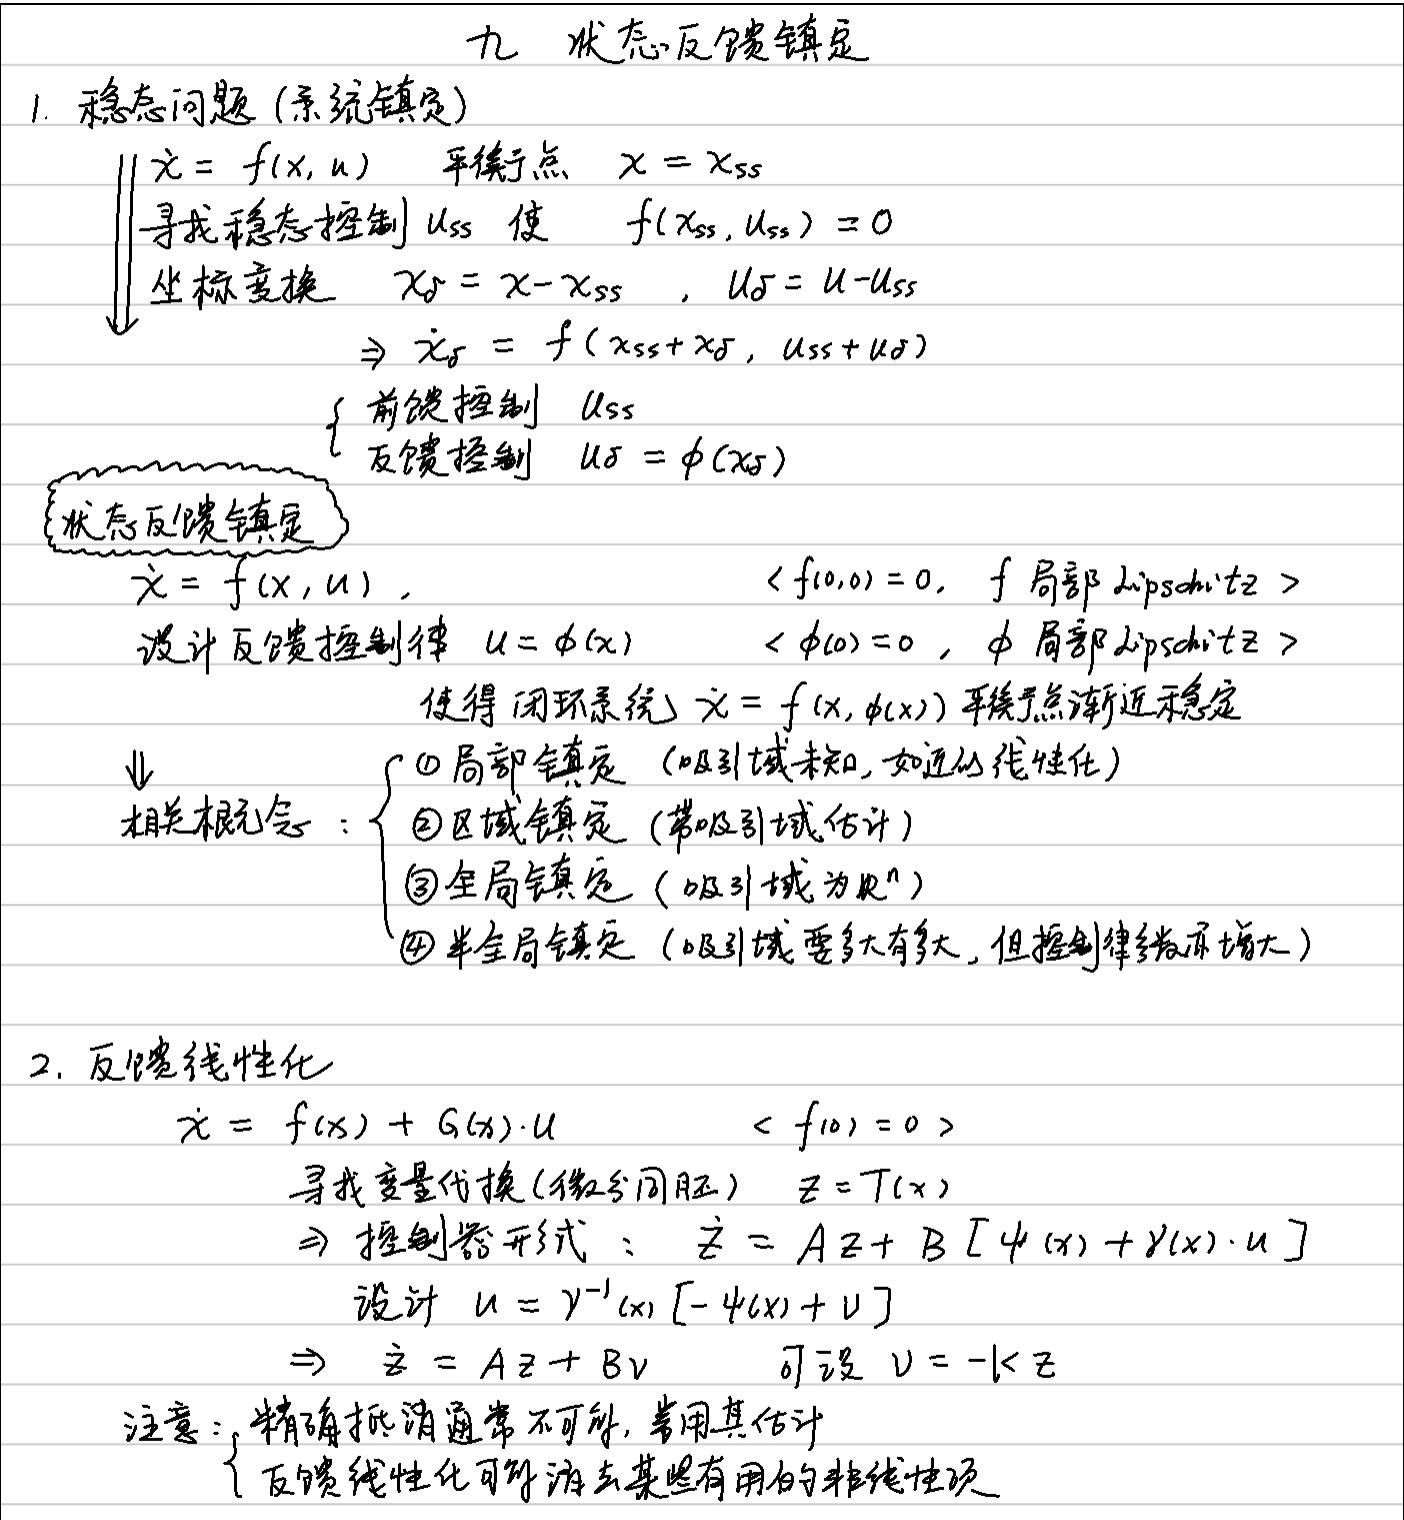 九 状态反馈镇定
1. 稳态问题 (系统镇定)
ẋ = f(x, u) 平衡点 x = xss
寻找稳态控制 uss 使 f(xss, uss) = 0
坐标变换 xδ = x - xss , uδ = u - uss
⇒ ẋδ = f(xss + xδ, uss + uδ)
{ 前馈控制 uss
反馈控制 uδ = ϕ(xδ)
状态反馈镇定
ẋ = f(x, u) , < f(0,0) = 0, f 局部 Lipschitz >
设计反馈控制律 u = ϕ(x) < ϕ(0) = 0 , ϕ 局部 Lipschitz >
使得闭环系统 ẋ = f(x, ϕ(x)) 平衡点渐近稳定
⇓ ① 局部镇定 (吸引域未知, 如近似线性化)
相关概念 : { ② 区域镇定 (带吸引域估计)
③ 全局镇定 (吸引域为 Rⁿ)
④ 半全局镇定 (吸引域要多大有多大, 但控制律参数亦增大)
2. 反馈线性化
ẋ = f(x) + G(x)·u < f(0) = 0 >
寻找变量代换 (微分同胚) z = T(x)
⇒ 控制器形式 : ż = Az + B [ψ(x) + γ(x)·u]
设计 u = γ⁻¹(x) [-ψ(x) + ν]
⇒ ż = Az + Bν 可设 ν = -Kz
注意 : { 精确抵消通常不可能, 常用其估计
反馈线性化可能消去某些有用的非线性项